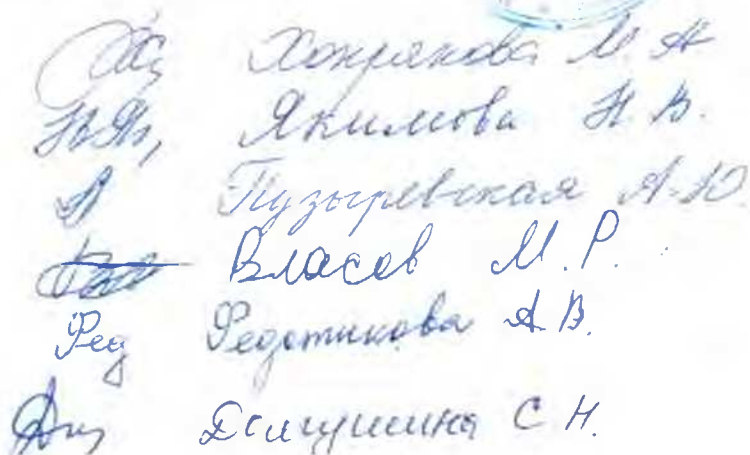 Хохрякова М. А
Якимова Н. В.
Пузыревская А.Ю.
Власов М. Р.
Фед Федотикова А. В.
Долгушина С. Н.